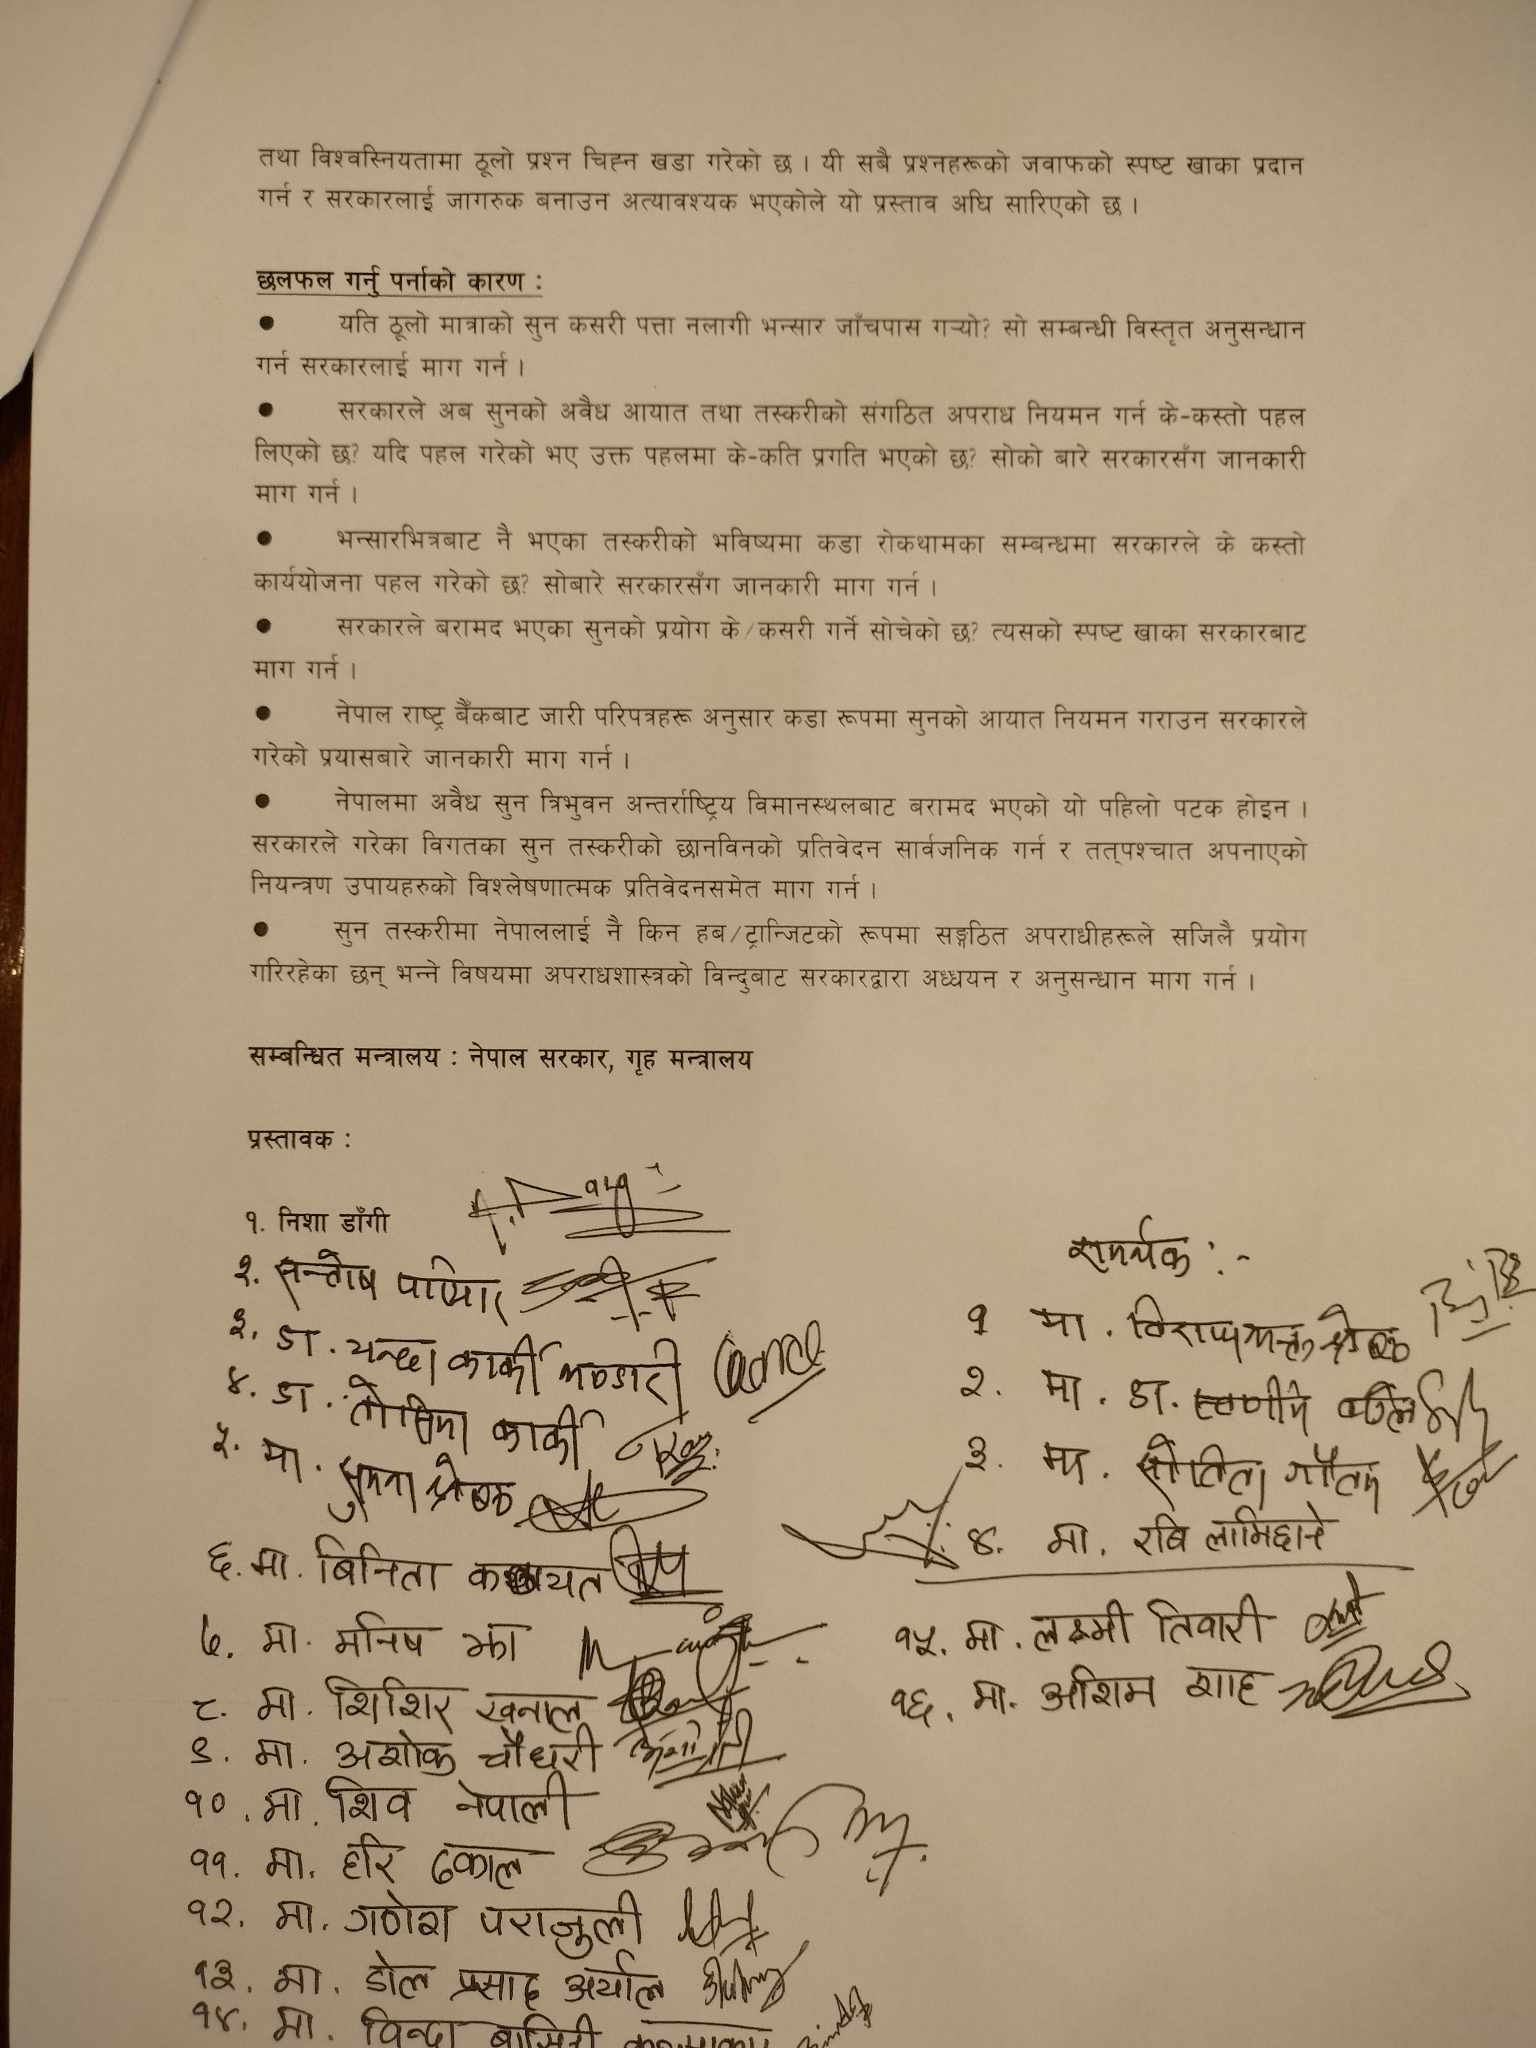 तथा विश्वस्नियतामा ठूलो प्रश्न चिह्न खडा गरेको छ । यी सबै प्रश्नहरूको जवाफको स्पष्ट खाका प्रदान
गर्न र सरकारलाई जागरुक बनाउन अत्यावश्यक भएकोले यो प्रस्ताव अघि सारिएको छ ।
छलफल गर्नु पर्नाको कारण :
● यति ठूलो मात्राको सुन कसरी पत्ता नलागी भन्सार जाँचपास गऱ्यो? सो सम्बन्धी विस्तृत अनुसन्धान
गर्न सरकारलाई माग गर्न ।
● सरकारले अब सुनको अवैध आयात तथा तस्करीको संगठित अपराध नियमन गर्न के-कस्तो पहल
लिएको छ? यदि पहल गरेको भए उक्त पहलमा के-कति प्रगति भएको छ? सोको बारे सरकारसँग जानकारी
माग गर्न ।
● भन्सारभित्रबाट नै भएका तस्करीको भविष्यमा कडा रोकथामका सम्बन्धमा सरकारले के कस्तो
कार्ययोजना पहल गरेको छ? सोबारे सरकारसँग जानकारी माग गर्न ।
● सरकारले बरामद भएका सुनको प्रयोग के/कसरी गर्ने सोचेको छ? त्यसको स्पष्ट खाका सरकारबाट
माग गर्न ।
● नेपाल राष्ट्र बैँकबाट जारी परिपत्रहरू अनुसार कडा रूपमा सुनको आयात नियमन गराउन सरकारले
गरेको प्रयासबारे जानकारी माग गर्न ।
● नेपालमा अवैध सुन त्रिभुवन अन्तर्राष्ट्रिय विमानस्थलबाट बरामद भएको यो पहिलो पटक होइन ।
सरकारले गरेका विगतका सुन तस्करीको छानविनको प्रतिवेदन सार्वजनिक गर्न र तत्पश्चात अपनाएको
नियन्त्रण उपायहरुको विश्लेषणात्मक प्रतिवेदनसमेत माग गर्न ।
● सुन तस्करीमा नेपाललाई नै किन हब/ट्रान्जिटको रूपमा सङ्गठित अपराधीहरूले सजिलै प्रयोग
गरिरहेका छन् भन्ने विषयमा अपराधशास्त्रको विन्दुबाट सरकारद्वारा अध्धयन र अनुसन्धान माग गर्न ।
सम्बन्धित मन्त्रालय : नेपाल सरकार, गृह मन्त्रालय
प्रस्तावक :
१. निशा डाँगी
२. सन्तोष परियार
३. डा. चन्दा कार्की भण्डारी
४. डा. तोसिमा कार्की
५. मा. सुमना श्रेष्ठ
६. मा. बिनिता कठायत
७. मा. मनिष झा
८. मा. शिशिर खनाल
९. मा. अशोक चौधरी
१०. मा. शिव नेपाली
११. मा. हरि ढकाल
१२. मा. गणेश पराजुली
१३. मा. डोल प्रसाद अर्याल
१४. मा. विन्दा बासिनी
समर्थक :-
१ मा. विराजभक्त श्रेष्ठ
२. मा. डा.
३. मा. सोविता गौतम
४. मा. रबि लामिछाने
१५. मा. लक्ष्मी तिवारी
१६. मा. अशिम शाह